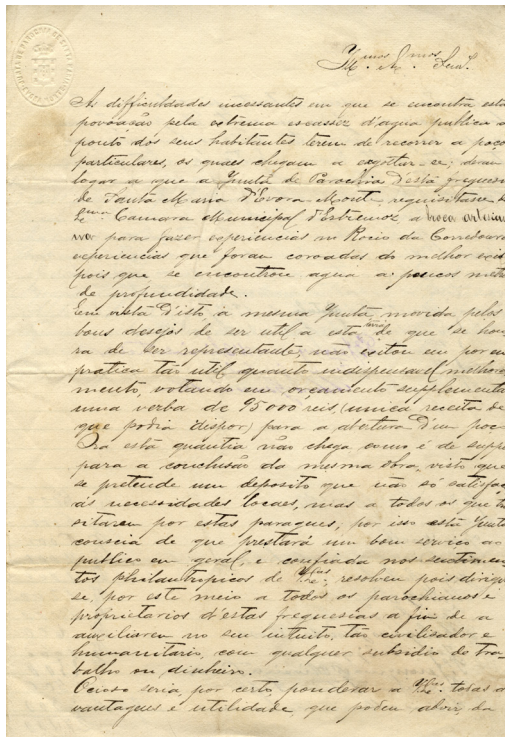 Ill.mos Ex.mos Snrs.
As difficuldades incessantes em que se encontra esta
povoação pela extrema escassez d'agua publica a
ponto dos seus habitantes terem de recorrer a poços
particulares, os quaes chegam a exgottar-se; deram
logar a que a Junta de Parochia d'esta freguesia
de Santa Maria d'Evora Monte, requisitasse á
Ex.ma Camara Municipal d'Estremoz a broca artesia
na para fazer experiencias no Rocio da Corredoura
experiencias que foram coroadas do melhor exito
pois que se encontrou agua a poucos met
de profundidade.
Em vista d'isto, a mesma Junta, movida pelos
bons desejos de ser util a esta de que se hon
ra de ser representante, não exitou em por em
pratica tão util quanto indispensavel melhora
mento, votando em orcamento supplementa
uma verba de 95000 reis, (unica receita de
que podia dispor) para a abertura d'um poç
Ora esta quantia não chega, como é de suppo
para a conclusão da mesma obra, visto que
se pretende um deposito que não só satisfaç
ás necessidades locaes, mas a todos os que tra
sitarem por estas paragens; por isso esta Junta
conscia de que prestará um bom serviço ao
publico em geral, e confiada nos sentimen
tos philantropicos de resolveu pois dirigi
se, por este meio a todos os parochianos e
proprietarios d'estas freguesias a fim de a
auxiliarem no seu intuito, tão civilisador e
humanitario, com qualquer subsidio de tra
balho ou dinheiro.
Ocioso seria, por certo, ponderar a todas a
vantagens e utilidade, que podem advir, da